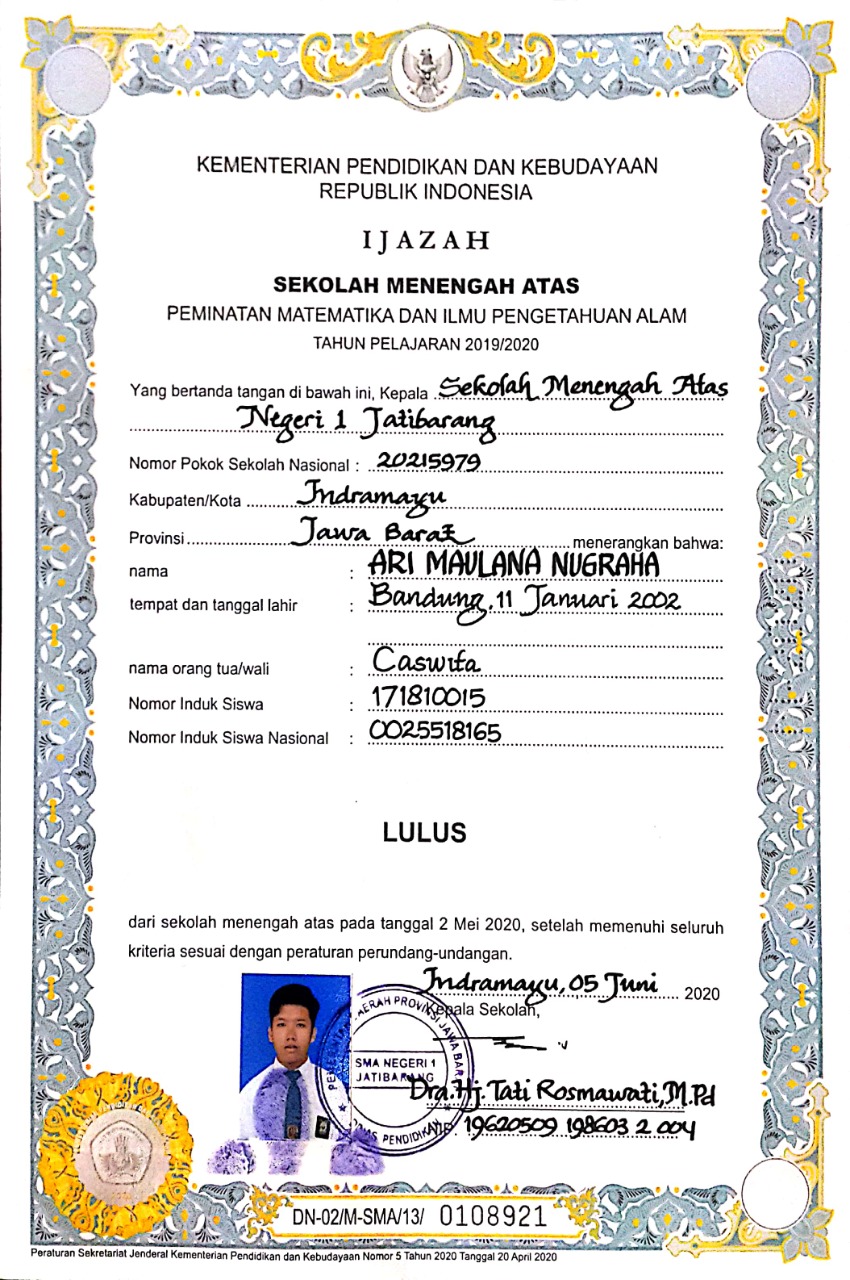 KEMENTERIAN PENDIDIKAN DAN KEBUDAYAAN
REPUBLIK INDONESIA
IJAZAH
SEKOLAH MENENGAH ATAS
PEMINATAN MATEMATIKA DAN ILMU PENGETAHUAN ALAM
TAHUN PELAJARAN 2019/2020
Yang bertanda tangan di bawah ini, Kepala Sekolah Menengah Atas
Negeri 1 Jatibarang
Nomor Pokok Sekolah Nasional : 20215979
Kabupaten/Kota Indramayu
Provinsi Jawa Barat menerangkan bahwa:
nama : ARI MAULANA NUGRAHA
tempat dan tanggal lahir : Bandung, 11 Januari 2002
nama orang tua/wali : Caswita
Nomor Induk Siswa : 171810015
Nomor Induk Siswa Nasional : 0025518165
LULUS
dari sekolah menengah atas pada tanggal 2 Mei 2020, setelah memenuhi seluruh
kriteria sesuai dengan peraturan perundang-undangan.
Indramayu, 05 Juni 2020
Kepala Sekolah,
DAERAH PROVINSI JAWA BARAT
SMA NEGERI 1
JATIBARANG
DINAS PENDIDIKAN
Dra. Hj. Tati Rosmawati, M.Pd
NIP. 19620509 198603 2 004
DN-02/M-SMA/13/ 0108921
Peraturan Sekretariat Jenderal Kementerian Pendidikan dan Kebudayaan Nomor 5 Tahun 2020 Tanggal 20 April 2020